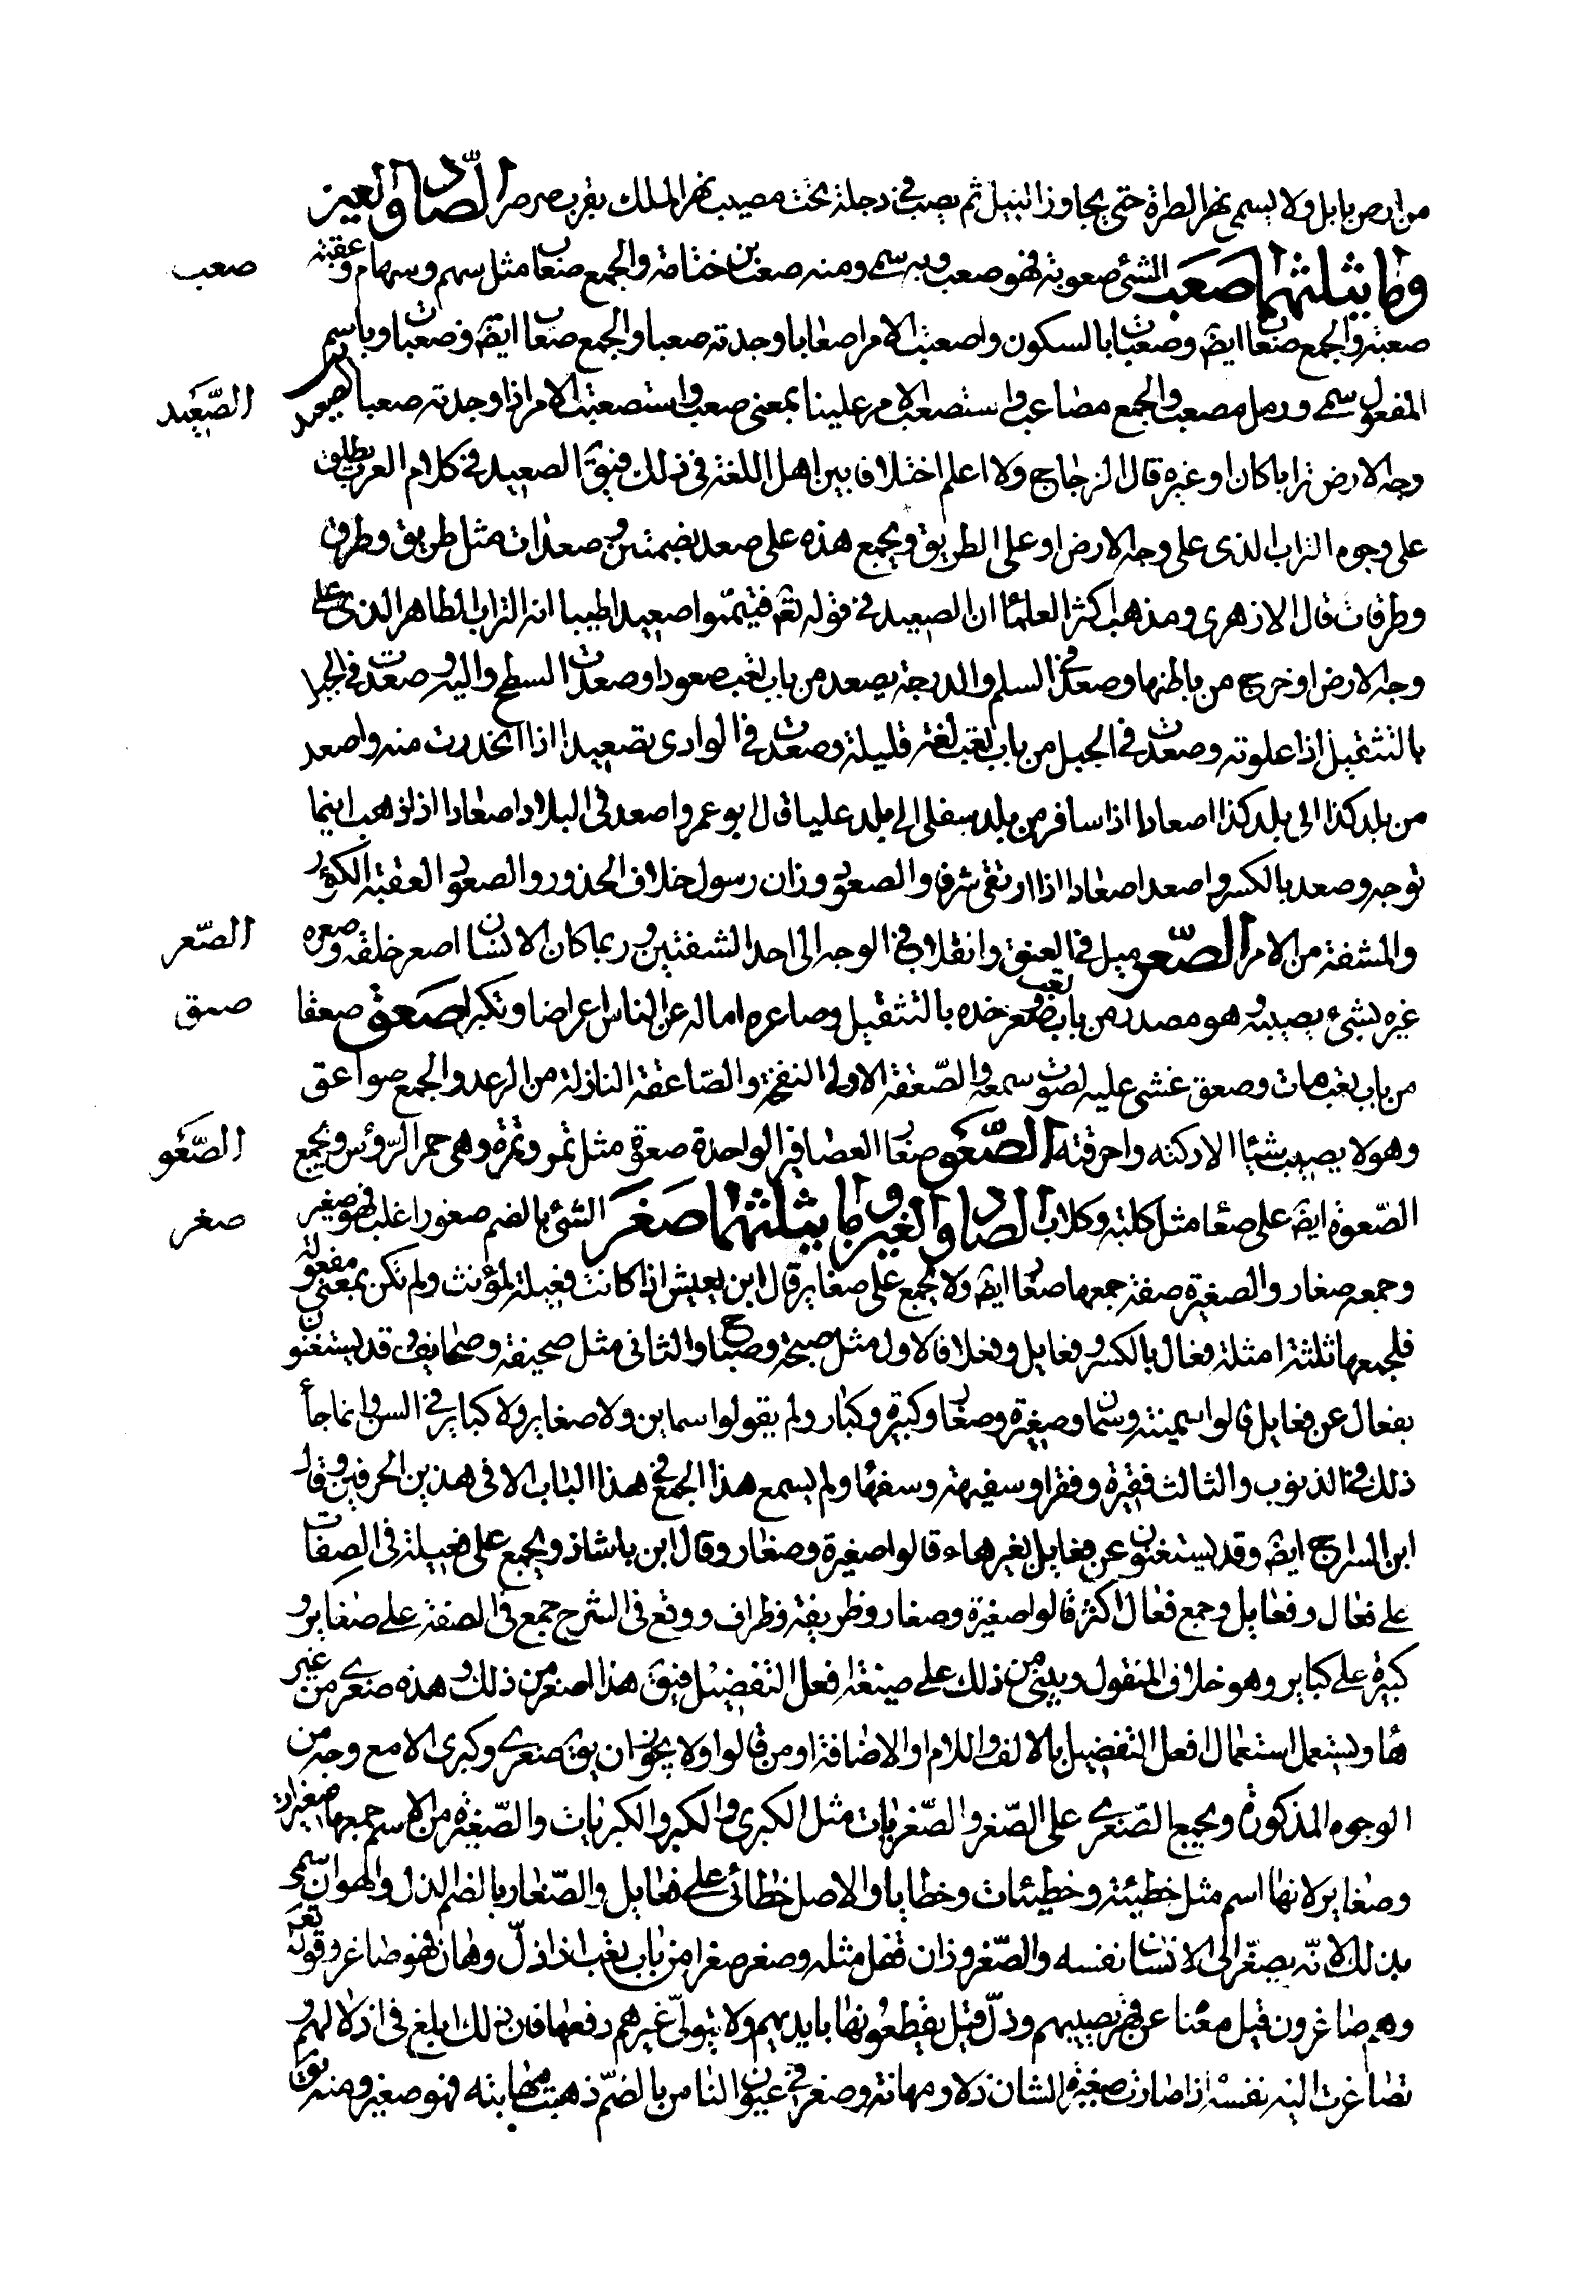 من ارض بابل ولا يسمى نهر الصراة حتى يجاوز النيل ثم يصب في دجلة تحت مصب نهر الملك بقرب صرصر الصاد والعين
وما يثلثهما صعب الشئ صعوبة فهو صعب وبه سمى ومنه صعب بن جثامة والجمع صعاب مثل سهم وسهام وعقبة
صعب
صعبة والجمع صعاب ايضا وصعبات بالسكون واصعبت الامر اصعابا وجدته صعبا والجمع صعاب ايضا وصعبات وباسم
المفعول سمى ورجل مصعب والجمع مصاعب واستصعب الامر علينا بمعنى صعب واستصعبت الامر اذا وجدته صعبا الصعيد
الصَّعيد
وجه الارض ترابا كان او غيره قال الزجاج ولا اعلم اختلافا بين اهل اللغة في ذلك فيق الصعيد في كلام العرب يطلق
على وجوه التراب الذى على وجه الارض او على الطريق ويجمع هذه على صعد بضمتين وصعدات مثل طريق وطرق
وطرقات قال الازهرى ومذهب اكثر العلماء ان الصعيد في قوله تعه فتيمموا صعيدا طيبا انه التراب الطاهر الذى على
وجه الارض او خرج من باطنها وصعد في السلم والدرجة يصعد من باب تعب صعودا وصعدت السطح واليه وصعدت في الجبل
بالتثقيل اذا علوته وصعدت في الجبل من باب تعب لغة قليلة وصعدت في الوادى تصعيدا اذا انحدرت منه واصعد
من بلد كذا الى بلد كذا اصعادا اذا سافر من بلد سفلى الى بلد عليا قال ابو عمرو اصعد في البلاد اصعادا اذا ذهب اينما
توجه وصعد بالكسر واصعد اصعادا اذا ارتقى شرفا والصعود وزان رسول خلاف الحدور والصعود العقبة الكؤد
والمشقة من الامر الصّعر ميل في العنق وانقلاب في الوجه الى احد الشقين وربما كان الانسان اصعر خلقة وصعره
الصّعر
غيره بشئ يصيبه وهو مصدر من باب تعب وصعر خده بالتثقيل وصاعره اماله عن الناس اعراضا وتكبرا صَعق صعقا
صعق
من باب تعب مات وصعق غشى عليه لصوت سمعه والصّعقة الاولى النفخة والصّاعقة النازلة من الرعد والجمع صواعق
وهو لا يصيب شيئا الا دكته واحرقته الصَّعْو صغار العصافير الواحدة صعوة مثل تمر وتمرة وهى حمر الرؤس ويجمع
الصَّعْو
الصّعوة ايضا على صعاء مثل كلبة وكلاب الصاد والغين وما يثلثهما صَغُرَ الشئ بالضم صغورا غلب فهو صغير
صغر
وجمعه صغار والصغيرة صفة جمعها صغار ايضا ولا يجمع على صغاير قال ابن يعيش اذا كانت فعيلة لمؤنث ولم تكن بمعنى مفعولة
فلجمعها ثلثة امثلة فعال بالكسر وفعايل وفعلاء فالاول مثل صبيحة وصباح والثانى مثل صحيفة وصحايف وقد يستغنون
بفعال عن فعايل قالوا سمينة وسمان وصغيرة وصغار وكبيرة وكبار ولم يقولوا سماين ولا صغاير ولا كباير في السن وانما جاء
ذلك في الذنوب والثالث فقيرة وفقراء وسفيهة وسفهاء ولم يسمع هذا الجمع في هذا الباب الا في هذين الحرفين وقال
ابن السراج ايضا وقد يستغنون عن فعايل بغيرهاء قالوا صغيرة وصغار وقال ابن بابشاذ ويجمع على فعيلة في الصفات
على فعال وفعايل وجمع فعال اكثر قالوا صغيرة وصغار وظريفة وظراف ووقع في الشرح جمع في الصفة على صغاير و
كبيرة على كباير وهو خلاف المنقول ويبنى من ذلك على صيغة افعل التفضيل فيق هذا اصغر من ذلك وهذه صغرى من غير
ها ويستعمل استعمال افعل التفضيل بالالف واللام او الاضافة او من قالوا ولا يجوز ان يق صغرى وكبرى الا مع وجه من
الوجوه المذكورة ويجمع الصّغرى على الصّغر والصّغريات مثل الكبرى والكبر والكبريات والصّغيرة من الاسم جمعها صغيرات
وصغاير لانها اسم مثل خطيئة وخطيئات وخطايا والاصل خطائى على فعايل والصّغار بالفتح الذل والهوان سمى
بذلك لانّه يصغّر الى الانسان نفسه والصّغر وزان قفل مثله وصغر صغرا من باب تعب اذا ذلّ وهان فهو صاغر وقوله تعه
وهم صاغرون قيل معناه عن قهر يصيبهم وذلّ قيل يعطونها بايديهم ولا يتولىّ غيرهم دفعها فان ذلك ابلغ في اذلالهم و
تصاغرت اليه نفسه اذا صارت صغيرة الشان ذلا ومهانة وصغر في عيون الناس بالضمّ ذهبت مهابته فهو صغير ومنه يق